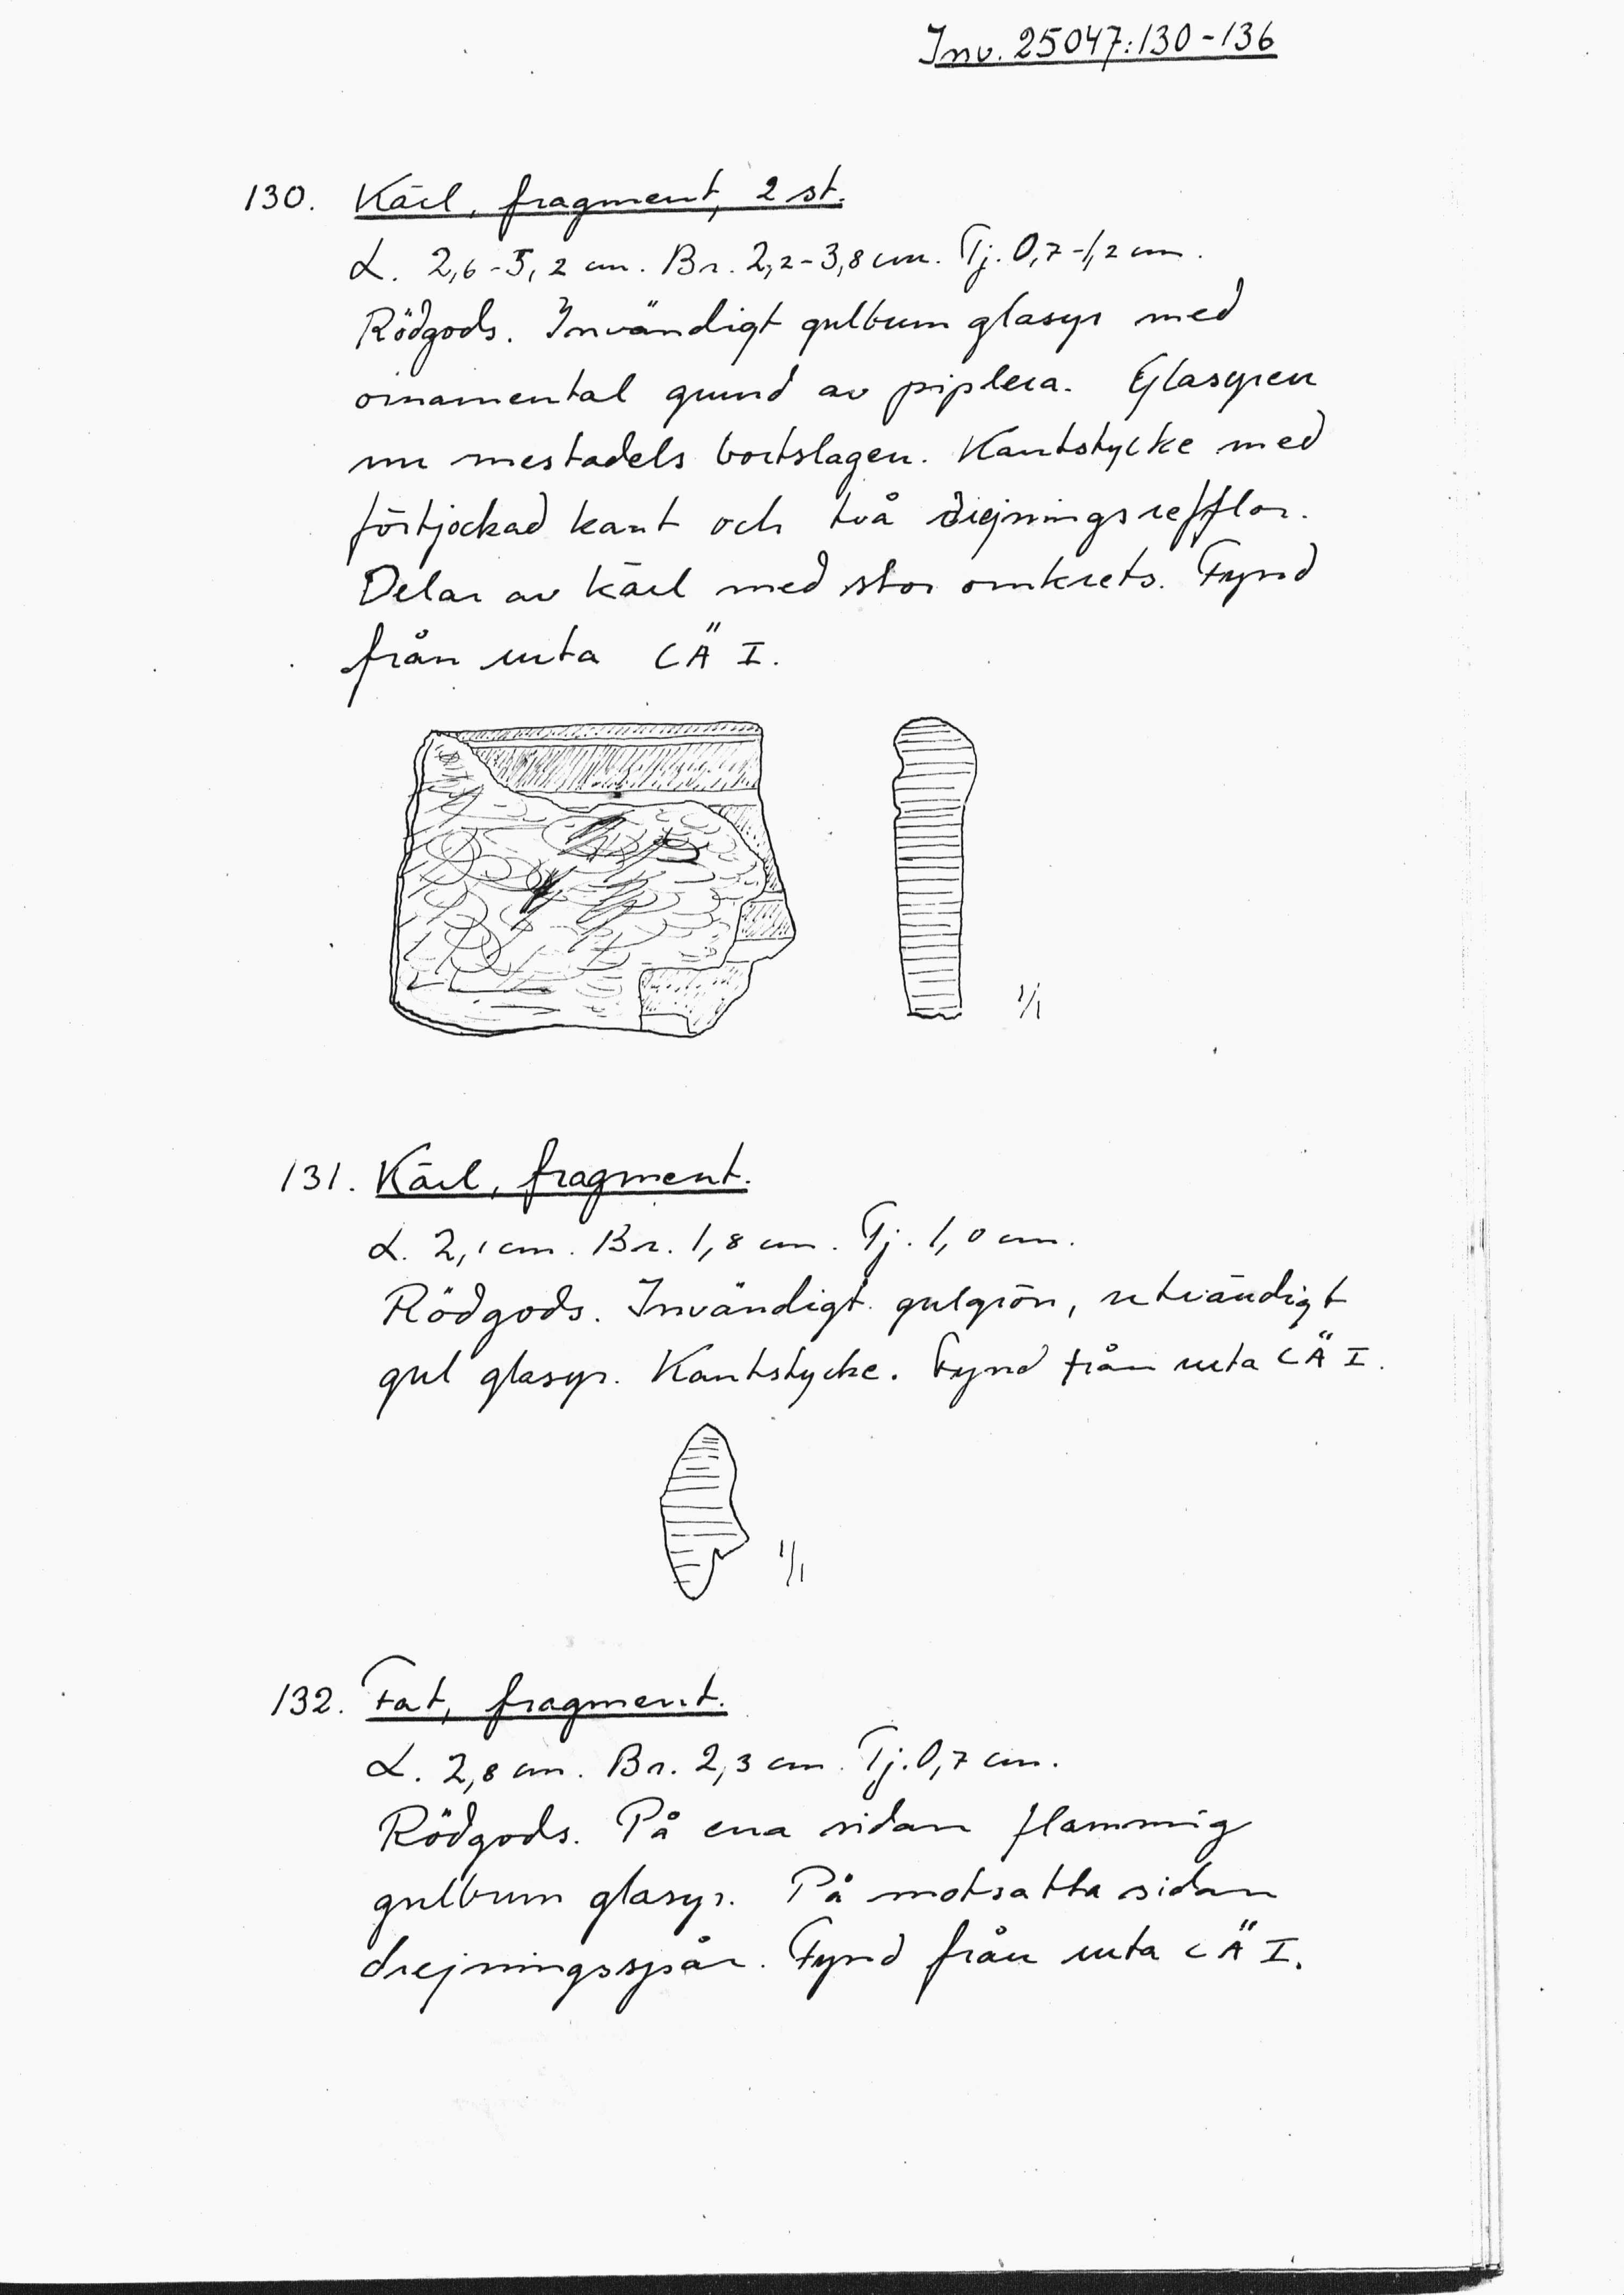 Inv. 25047:130-136
130. Kärl, fragment, 2 st.
L. 2,6-5,2 cm. Br. 2,2-3,8 cm. Tj. 0,7-1,2 cm.
Rödgods. Invändigt gulbrun glasyr med
ornamental grund av piplera. Glasyren
nu mestadels bortslagen. Kantstycke med
förtjockad kant och två drejningsrefflor.
Delar av kärl med stor omkrets. Fynd
från ruta CÄ I.
1/1
131. Kärl, fragment.
L. 2,1 cm. Br. 1,8 cm. Tj. 1,0 cm.
Rödgods. Invändigt gulgrön, utvändigt
gul glasyr. Kantstycke. Fynd från ruta CÄ I.
1/1
132. Fat, fragment.
L. 2,8 cm. Br. 2,3 cm. Tj. 0,7 cm.
Rödgods. På ena sidan flammig
gulbrun glasyr. På motsatta sidan
drejningsspår. Fynd från ruta CÄ I.